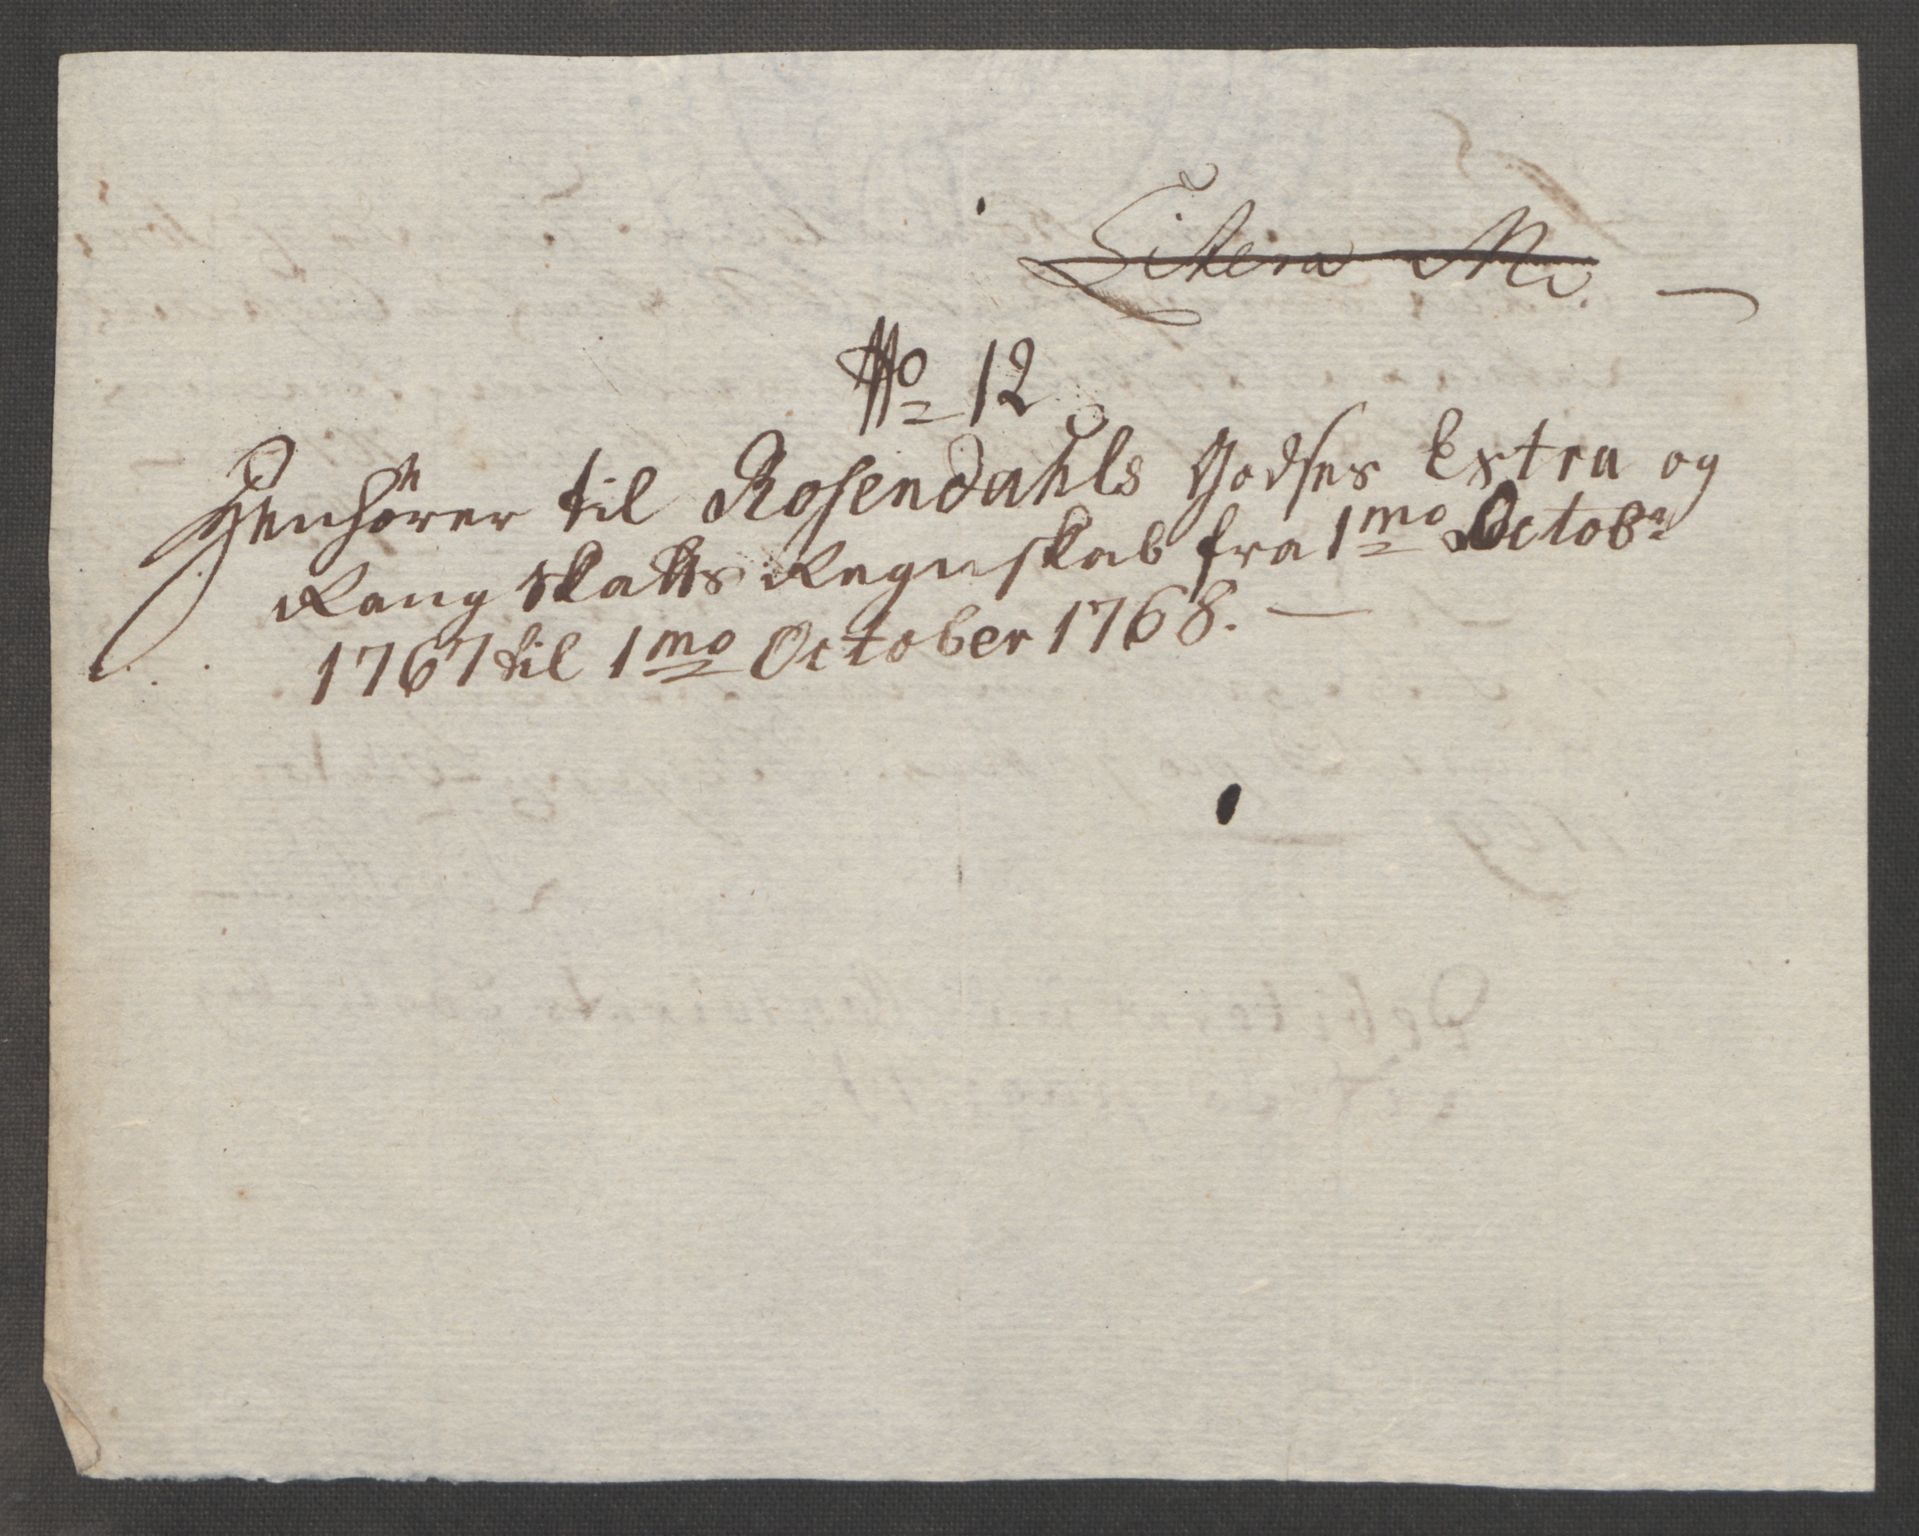 Litera M.
No 12
Henhører til Rosendahls Godses Extra og
Rang Skatts Regnskab fra 1mo Octobr
1767 til 1mo October 1768.